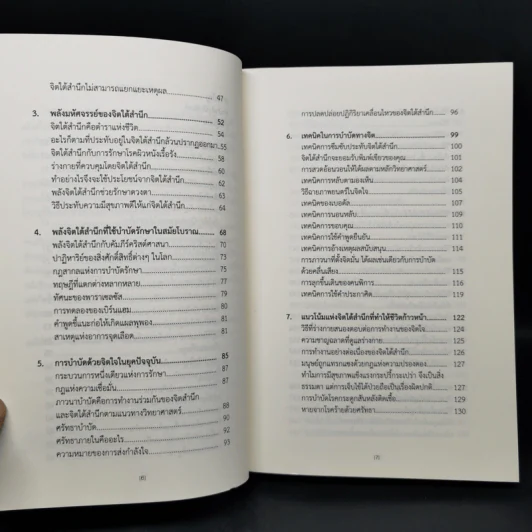 จิตใต้สำนึกไม่สามารถแยกแยะเหตุผล 47
3. พลังมหัศจรรย์ของจิตใต้สำนึก 52
จิตใต้สำนึกคือตำราแห่งชีวิต 54
อะไรก็ตามที่ประทับอยู่ในจิตใต้สำนึกล้วนปรากฏออกมา 55
จิตใต้สำนึกกับการรักษาโรคผิวหนังเรื้อรัง 58
ร่างกายที่ควบคุมโดยจิตใต้สำนึก 60
ทำอย่างไรจึงจะใช้ประโยชน์จากจิตใต้สำนึก 61
พลังจิตใต้สำนึกช่วยรักษาดวงตา 62
วิธีประทับความมีสุขภาพดีให้แก่จิตใต้สำนึก 64
4. พลังจิตใต้สำนึกที่ใช้บำบัดรักษาในสมัยโบราณ 68
พลังจิตใต้สำนึกกับคัมภีร์คริสต์ศาสนา 70
ปาฏิหาริย์ของสิ่งศักดิ์สิทธิ์ต่างๆ ในโลก 73
กฎสากลแห่งการบำบัดรักษา 75
ทฤษฎีที่แตกต่างหลากหลาย 76
ทัศนะของพาราเซลซัส 78
การทดลองของเบิร์นแฮม 78
คำพูดชี้แนะก่อให้เกิดแผลพุพอง 80
สาเหตุแห่งอาการจุดเลือด 81
5. การบำบัดด้วยจิตใจในยุคปัจจุบัน 85
กระบวนการหนึ่งเดียวแห่งการรักษา 86
กฎแห่งความเชื่อมั่น 87
ภาวนาบำบัดคือการทำงานร่วมกันของจิตสำนึก
และจิตใต้สำนึกตามแนวทางวิทยาศาสตร์ 88
ศรัทธาบำบัด 90
ศรัทธาภายในคืออะไร 92
ความหมายของการส่งกำลังใจ 93
(6)
การปลดปล่อยปฏิกิริยาเคลื่อนไหวของจิตใต้สำนึก 96
6. เทคนิคในการบำบัดทางจิต 99
เทคนิคการซึมซับประทับจิตใต้สำนึก 100
จิตใต้สำนึกจะยอมรับพิมพ์เขียวของคุณ 101
การสวดอ้อนวอนให้ได้ผลตามหลักวิทยาศาสตร์ 103
เทคนิคการหลับตามองเห็น 103
วิธีฉายภาพยนตร์ในจิตใจ 105
เทคนิคของเบอดัล 107
เทคนิคการนอนหลับ 109
เทคนิคการขอบคุณ 110
เทคนิคการใช้คำพูดยืนยัน 111
เทคนิคการอ้างเหตุผลสนับสนุน 111
การภาวนาที่ตั้งจิตมั่น ได้ผลเช่นเดียวกับการบำบัด
ด้วยคลื่นเสียง 114
การลุกขึ้นเดินของคนพิการ 115
เทคนิคการใช้คำประกาศิต 119
7. แนวโน้มแห่งจิตใต้สำนึกที่ทำให้ชีวิตก้าวหน้า 122
วิธีที่ร่างกายสนองตอบต่อการทำงานของจิตใจ 123
ความชาญฉลาดที่ดูแลร่างกาย 124
การทำงานอย่างต่อเนื่องของจิตใต้สำนึก 124
มนุษย์ถูกแทรกแซงด้วยกฎแห่งความปรองดอง 126
ทำไมการมีสุขภาพแข็งแรงกระปรี้กระเปร่า จึงเป็นสิ่ง
ธรรมดา แต่การเจ็บไข้ได้ป่วยถือเป็นเรื่องผิดปกติ 127
การบำบัดโรคกระดูกสันหลังติดเชื้อ 129
หายจากโรคร้ายด้วยศรัทธา 130